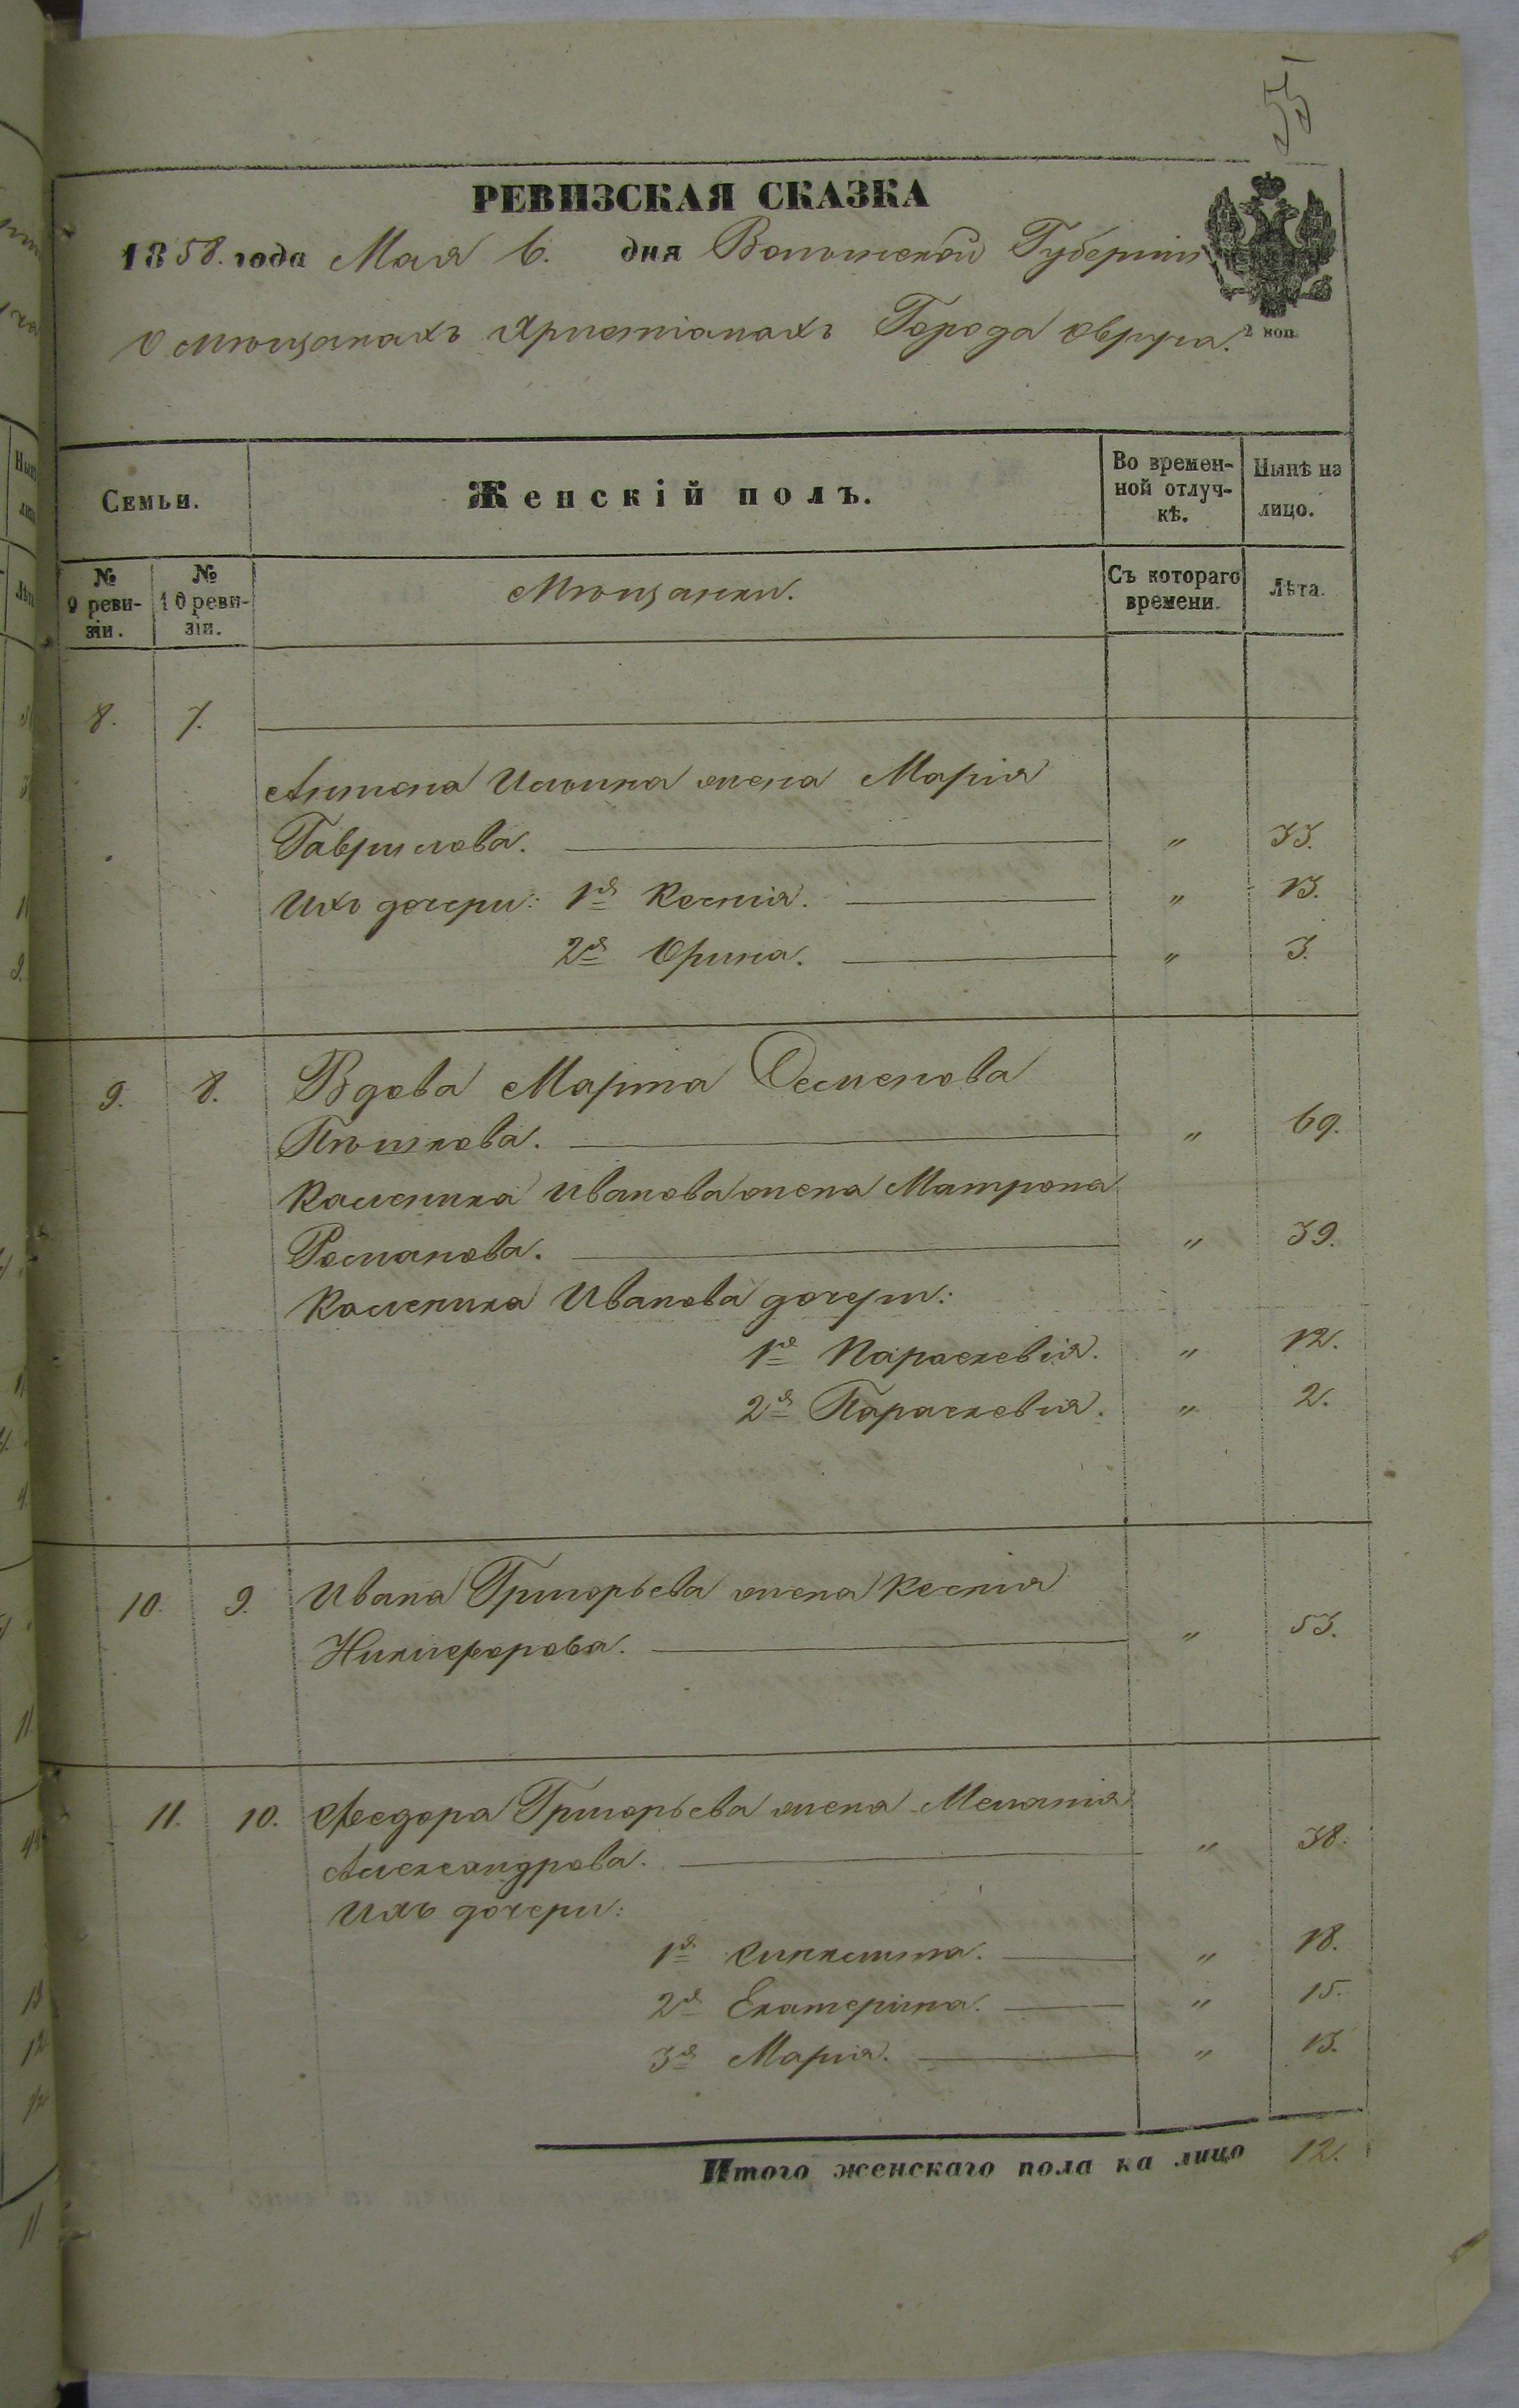 55
РЕВИЗСКАЯ СКАЗКА
1858. года Мая 6. дня Волынской Губерніи
О мѣщанахъ Христіанахъ Города Овруча.
2 коп.
Семьи.
Женскій полъ.
Во времен-
ной отлуч-
кѣ.
Нынѣ на
лицо.
№
9 реви-
зіи.
№
10 реви-
зіи.
Мѣщанки.
Съ котораго
времени.
Лѣта.
8. 7.
Антона Ильина жена Марія
Гаврилова. " 33.
Ихъ дочери: 1я Ксенія. " 13.
2я Орина. " 3.
9. 8. Вдова Марта Семенова
Пѣшкова. " 69.
Каленика Иванова жена Матрона
Романова. " 39.
Каленика Иванова дочери:
1я Параскевія. " 12.
2я Параскевія. " 2.
10. 9. Ивана Григорьева жена Ксенія
Никифорова. " 53.
11. 10. Феодора Григорьева жена Меланія
Александрова. " 38.
Ихъ дочери:
1я " 18.
2я Екатерина. " 15.
3я Марія. " 13.
Итого женскаго пола на лицо 12.